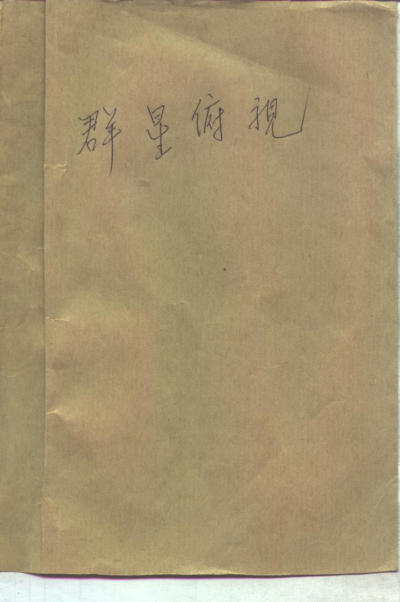 群星俯視